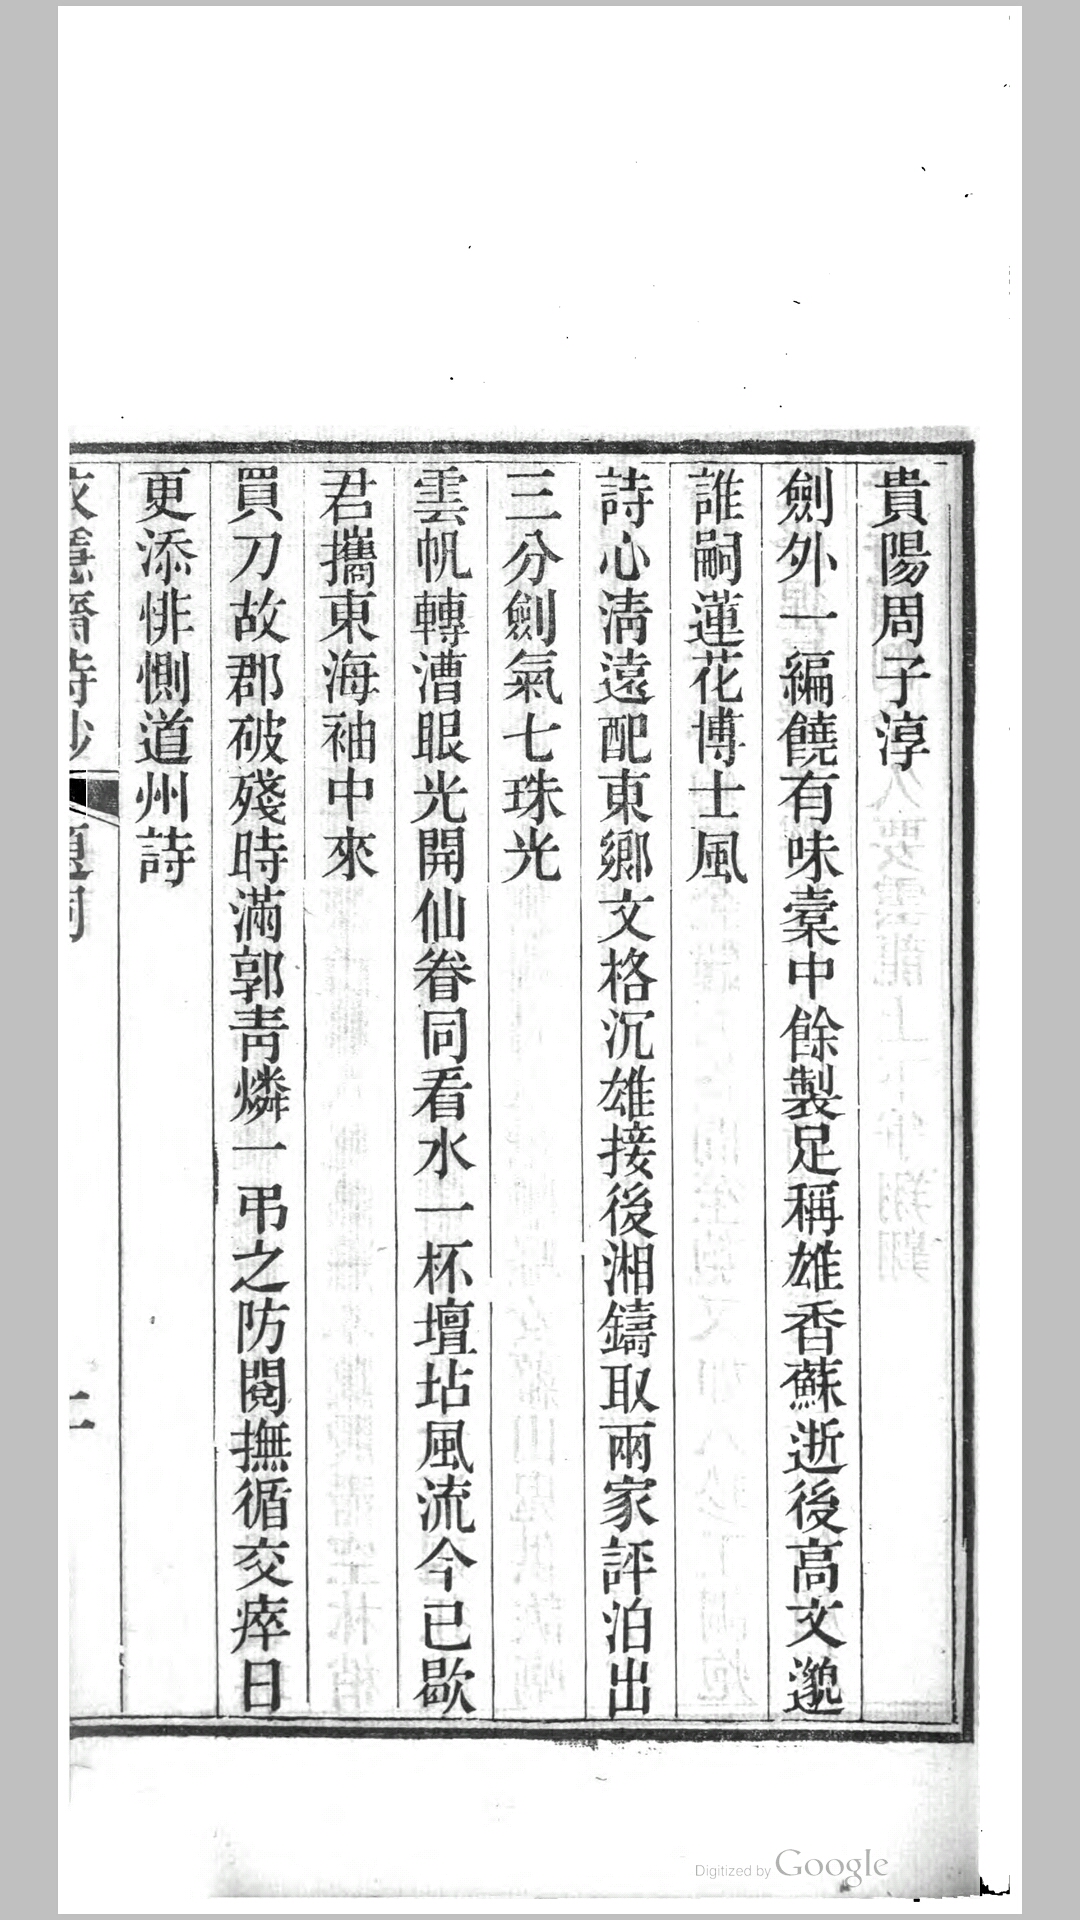 貴陽周子淳
劍外一編饒有味橐中餘製足稱雄香蘇逝後高文邈
誰嗣蓮花博士風
詩心淸遠配東鄉文格沉雄接後湘鑄取兩家評泊出
三分劍氣七珠光
雲帆轉漕眼光開仙眷同看水一杯壇坫風流今已歇
君攜東海袖中來
買刀故郡破殘時滿郭靑燐一弔之防閱撫循交瘁日
更添悱惻道州詩
齋詩鈔
題詞
二
Digitized by Google